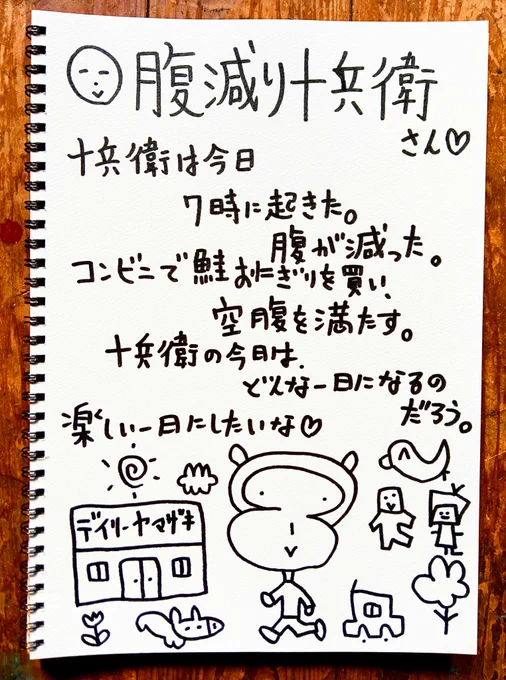 腹減り十兵衛
さん♡
十兵衛は今日
7時に起きた。
腹が減った。
コンビニで鮭おにぎりを買い、
空腹を満たす。
十兵衛の今日は、
どんな一日になるの
だろう。
楽しい一日にしたいな♡
デイリーヤマザキ